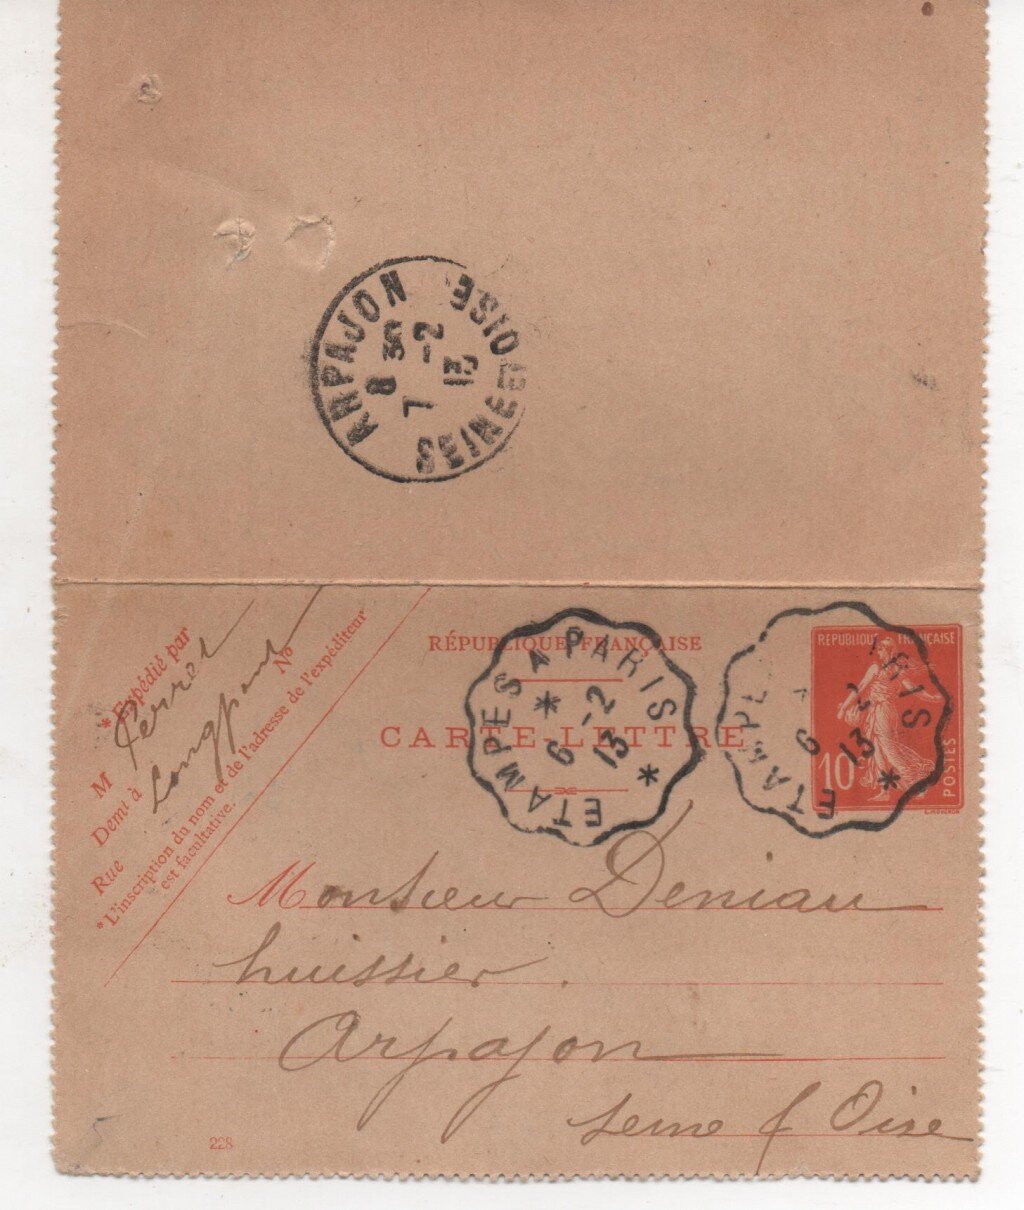 ARPAJON
8 30
7 -2
13
SEINE ET OISE
*Expédié par
M Perret
Demt à Longpont
Rue Nº
*L'inscription du nom et de l'adresse de l'expéditeur
est facultative.
RÉPUBLIQUE FRANÇAISE
CARTE-LETTRE
ETAMPES A PARIS
*
6 -2
13
*
ETAMPE ARIS
6 2
13
*
REPUBLIQUE FRANÇAISE
10c
POSTES
Monsieur Deniau
huissier.
Arpajon
Seine & Oise
228